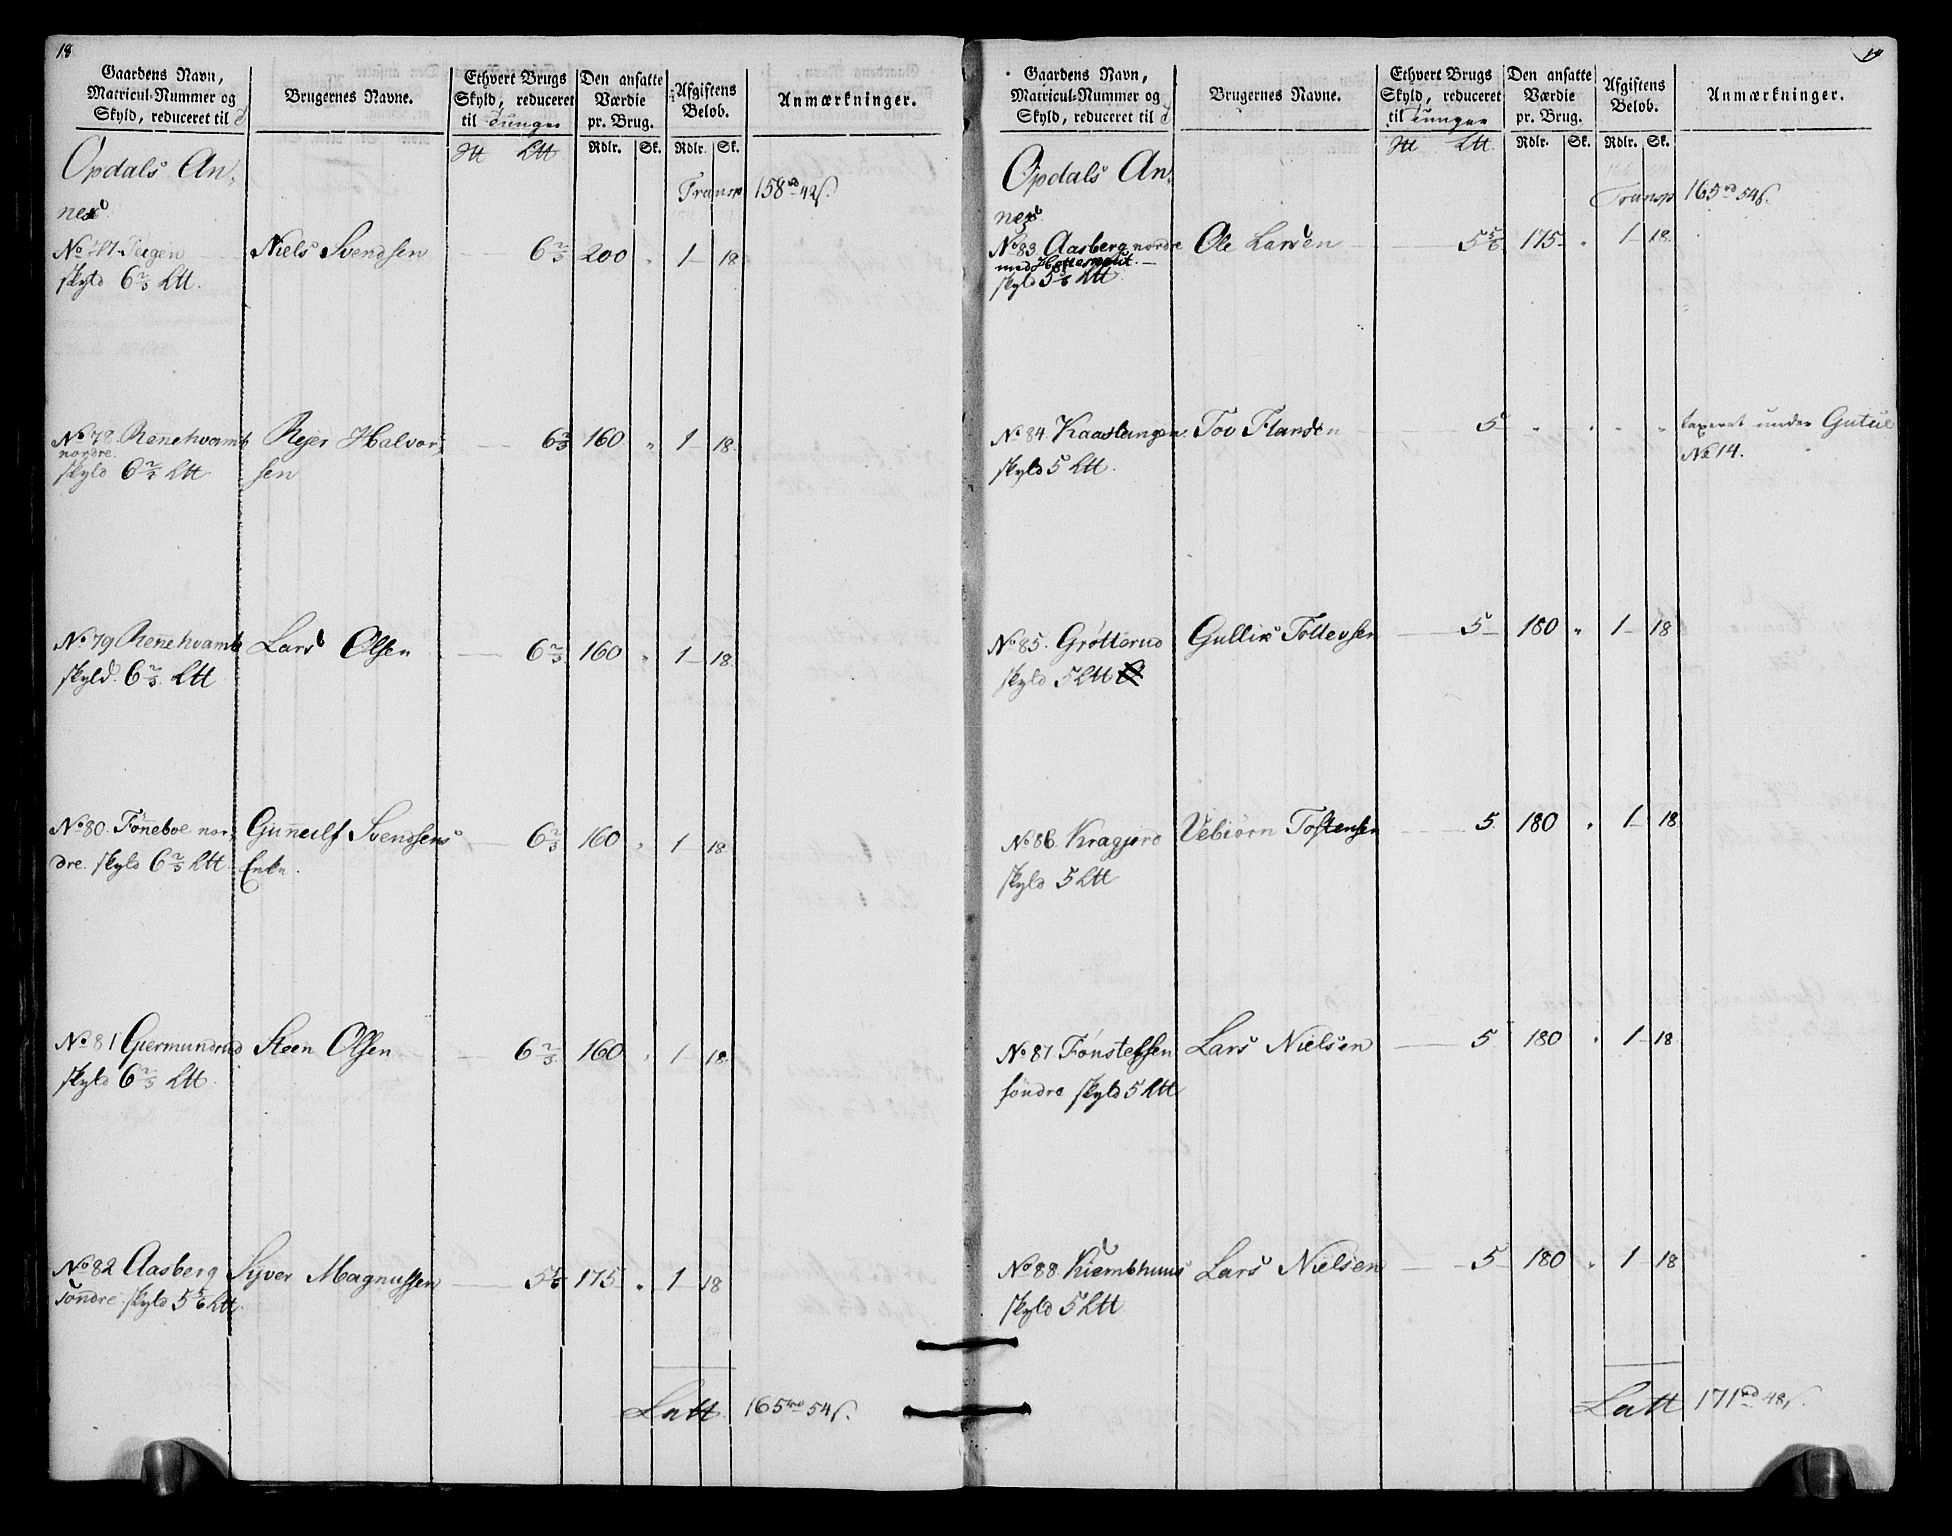 18
Gaardens Navn, Matricul-Nummer og Skyld, reduceret til
Brugernes Navne.
Ethvert Brugs Skyld, reduceret til Tunger
Den ansatte Værdie pr. Brug.
Afgiftens Beløb.
Anmærkninger.
Rdlr. Sk. Rdlr. Sk.
Opdals An-
nex
Transp 158 rd 42 s.
No 77 Teigen Niels Svendsen 6 2/3 200 " 1 18
skyld 6 2/3 Ltt.
No 78 Renehvamb Rejer Halvor- 6 2/3 160 " 1 18.
nordre.
skyld 6 2/3 Ltt sen
No 79 Renehvamb Lars Olsen 6 2/3 160 " 1 18
skyld 6 2/3 Ltt
No 80. Fönneboe nor- Gunneilf Svendsens 6 2/3 160 " 1 18
dre. skyld 6 2/3 Ltt Enke.
No 81 Giermundrud Steen Olsen 6 2/3 160 " 1 18
skyld 6 2/3 Ltt
No 82 Aasberg Syver Magnussen 5 5/6 175 " 1 18
söndre skyld 5 5/6 Ltt
Latt 165 rd 54 s.
19
Gaardens Navn, Matricul-Nummer og Skyld, reduceret til
Brugernes Navne.
Ethvert Brugs Skyld, reduceret til Tunger
Den ansatte Værdie pr. Brug.
Afgiftens Beløb.
Anmærkninger.
Rdlr. Sk. Rdlr. Sk.
Opdals An-
nex
Transp 165 rd 54 s.
No 83 Aasberg nordre Ole Larsen 5 5/6 175 " 1 18.
med
skyld 5 5/6 Ltt
No 84. Kaaslangen Tov Flanden 5 " " " " taxeret under Gutue
skyld 5 Ltt. No 14.
No 85. Gröttorud Gullik Tollevsen 5 180 " 1 18
skyld 5 Ltt
No 86. Kragjord Vebiörn Tostensen 5 180 " 1 18
skyld 5 Ltt
No 87 Fönstelien Lars Nielsen 5 180 " 1 18
söndre skyld 5 Ltt
No 88. Kiembhuus Lars Nielsen 5 180 " 1 18
skyld 5 Ltt
Latt 171 rd 48 s.